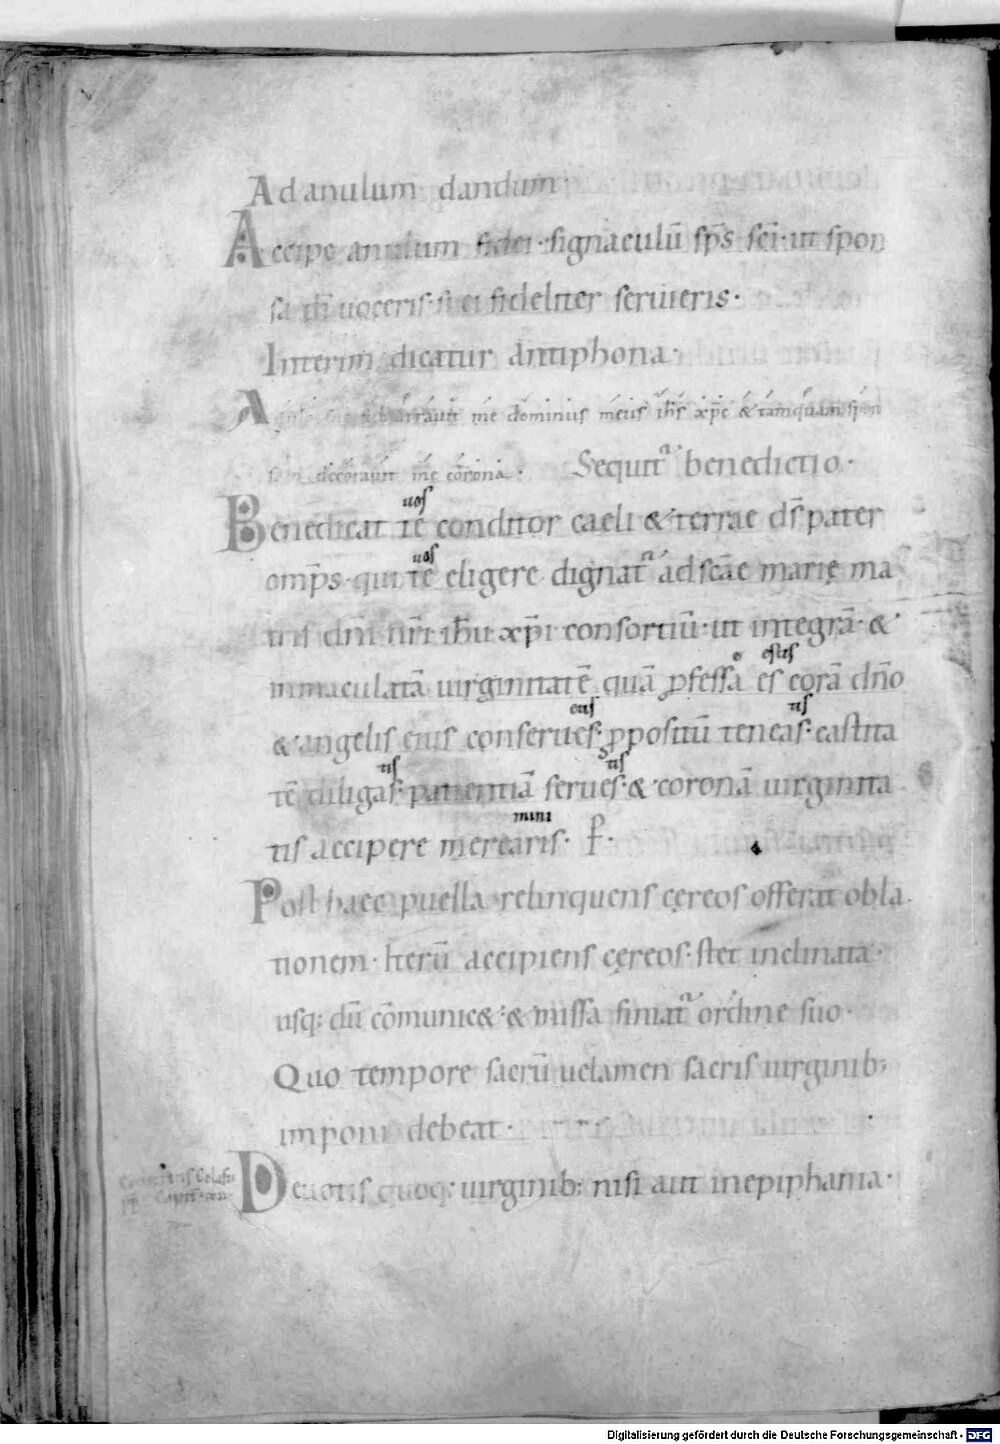 Ad anulum dandum
Accipe anulum fidei · signaculū sp̄s sc̄i · ut spon
sa dī uoceris · si ei fideliter seruieris ·
Interim dicatur antiphona ·
subarrauit me dominus meus ih̄s xp̄c & tamquam spon
sam decorauit me corona · Sequit᷒ benedictio ·
uos
Benedicat te conditor caeli & terrae d̄s pater
uos
omp̄s · qui te eligere dignat᷒ ad sc̄ae marię ma
tris dn̄i nr̄i ih̄u xp̄i consortiū · ut integrā · &
e estis
inmaculatā uirginitatē quā ꝓfessa es corā dn̄o
etis tis
& angelis eius conserues · ꝓpositū teneas · castita
tis tis
tē diligas · patientiā serues · & coronā uirginita
mini
tis accipere merearis · P̄ ·
Post haec puella relinquens cęreos offerat obla
tionem · Iterū accipiens cęreos · stet inclinata ·
usq; dū cōmunic& · & missa finiat᷒ ordine suo ·
Quo tempore sacrū uelamen sacris uirginib;
imponi debeat ·
Deuotis quoq; uirginib; nisi aut in epiphania ·
Digitalisierung gefördert durch die Deutsche Forschungsgemeinschaft - DFG